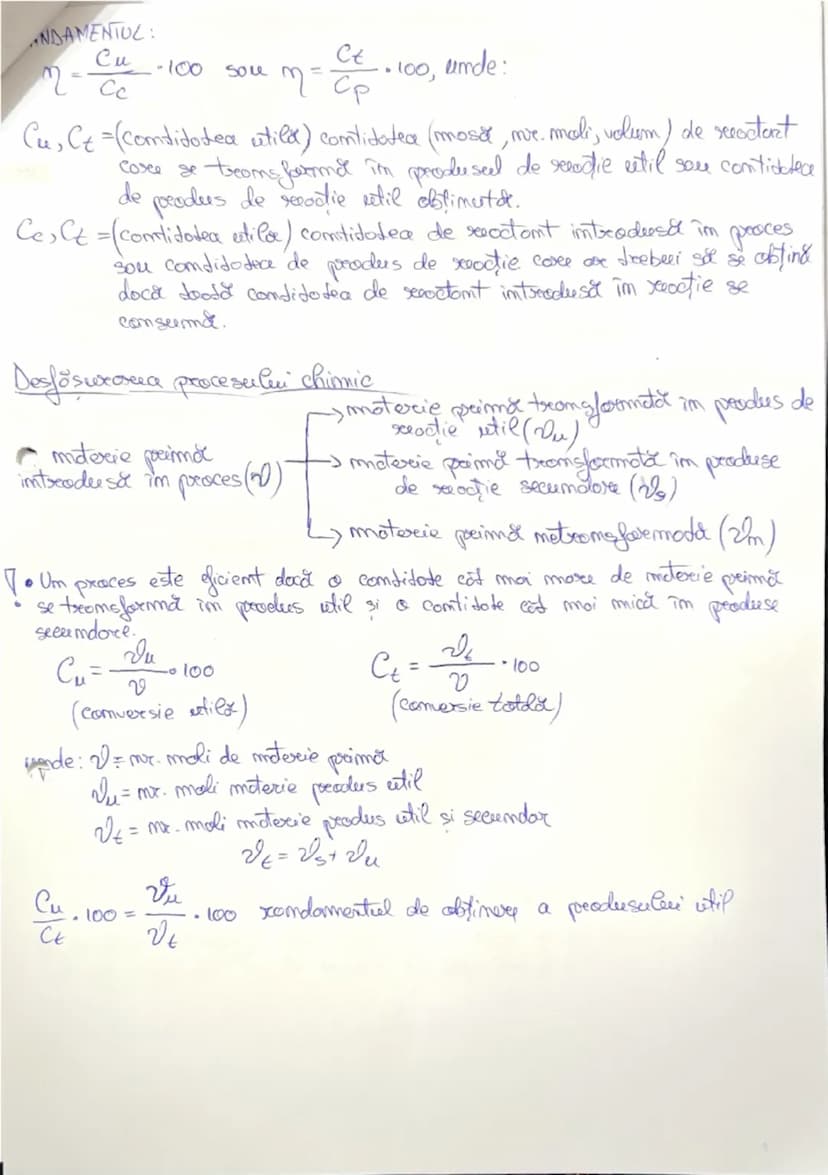 RANDAMENTUL:
η = Cu/Cc · 100 sau η = Ct/Cp · 100, unde:
Cu, Ct = (cantitatea utilă) cantitatea (masă, nr. moli, volum) de reactant
care se transformă în produsul de reacție util sau cantitatea
de produs de reacție util obținută.
Cc, Ct = (cantitatea utilă) cantitatea de reactant introdusă în proces
sau cantitatea de produs de reacție care ar trebui să se obțină
dacă toată cantitatea de reactant introdusă în reacție se
consumă.
Desfășurarea procesului chimic
→ materie primă transformată în produs de
reacție util (νu)
materie primă
introdusă în proces (ν)
→ materie primă transformată în produse
de reacție secundare (νs)
→ materie primă netransformată (νn)
• Un proces este eficient dacă o cantitate cât mai mare de materie primă
• se transformă în produs util și o cantitate cât mai mică în produse
secundare.
Cu = νu/ν · 100 Ct = νt/ν · 100
(conversie utilă) (conversie totală)
unde: ν = nr. moli de materie primă
νu = nr. moli materie produs util
νt = nr. moli materie produs util și secundar
νt = νs + νu
Cu/Ct · 100 = νu/νt · 100 randamentul de obținere a produsului util